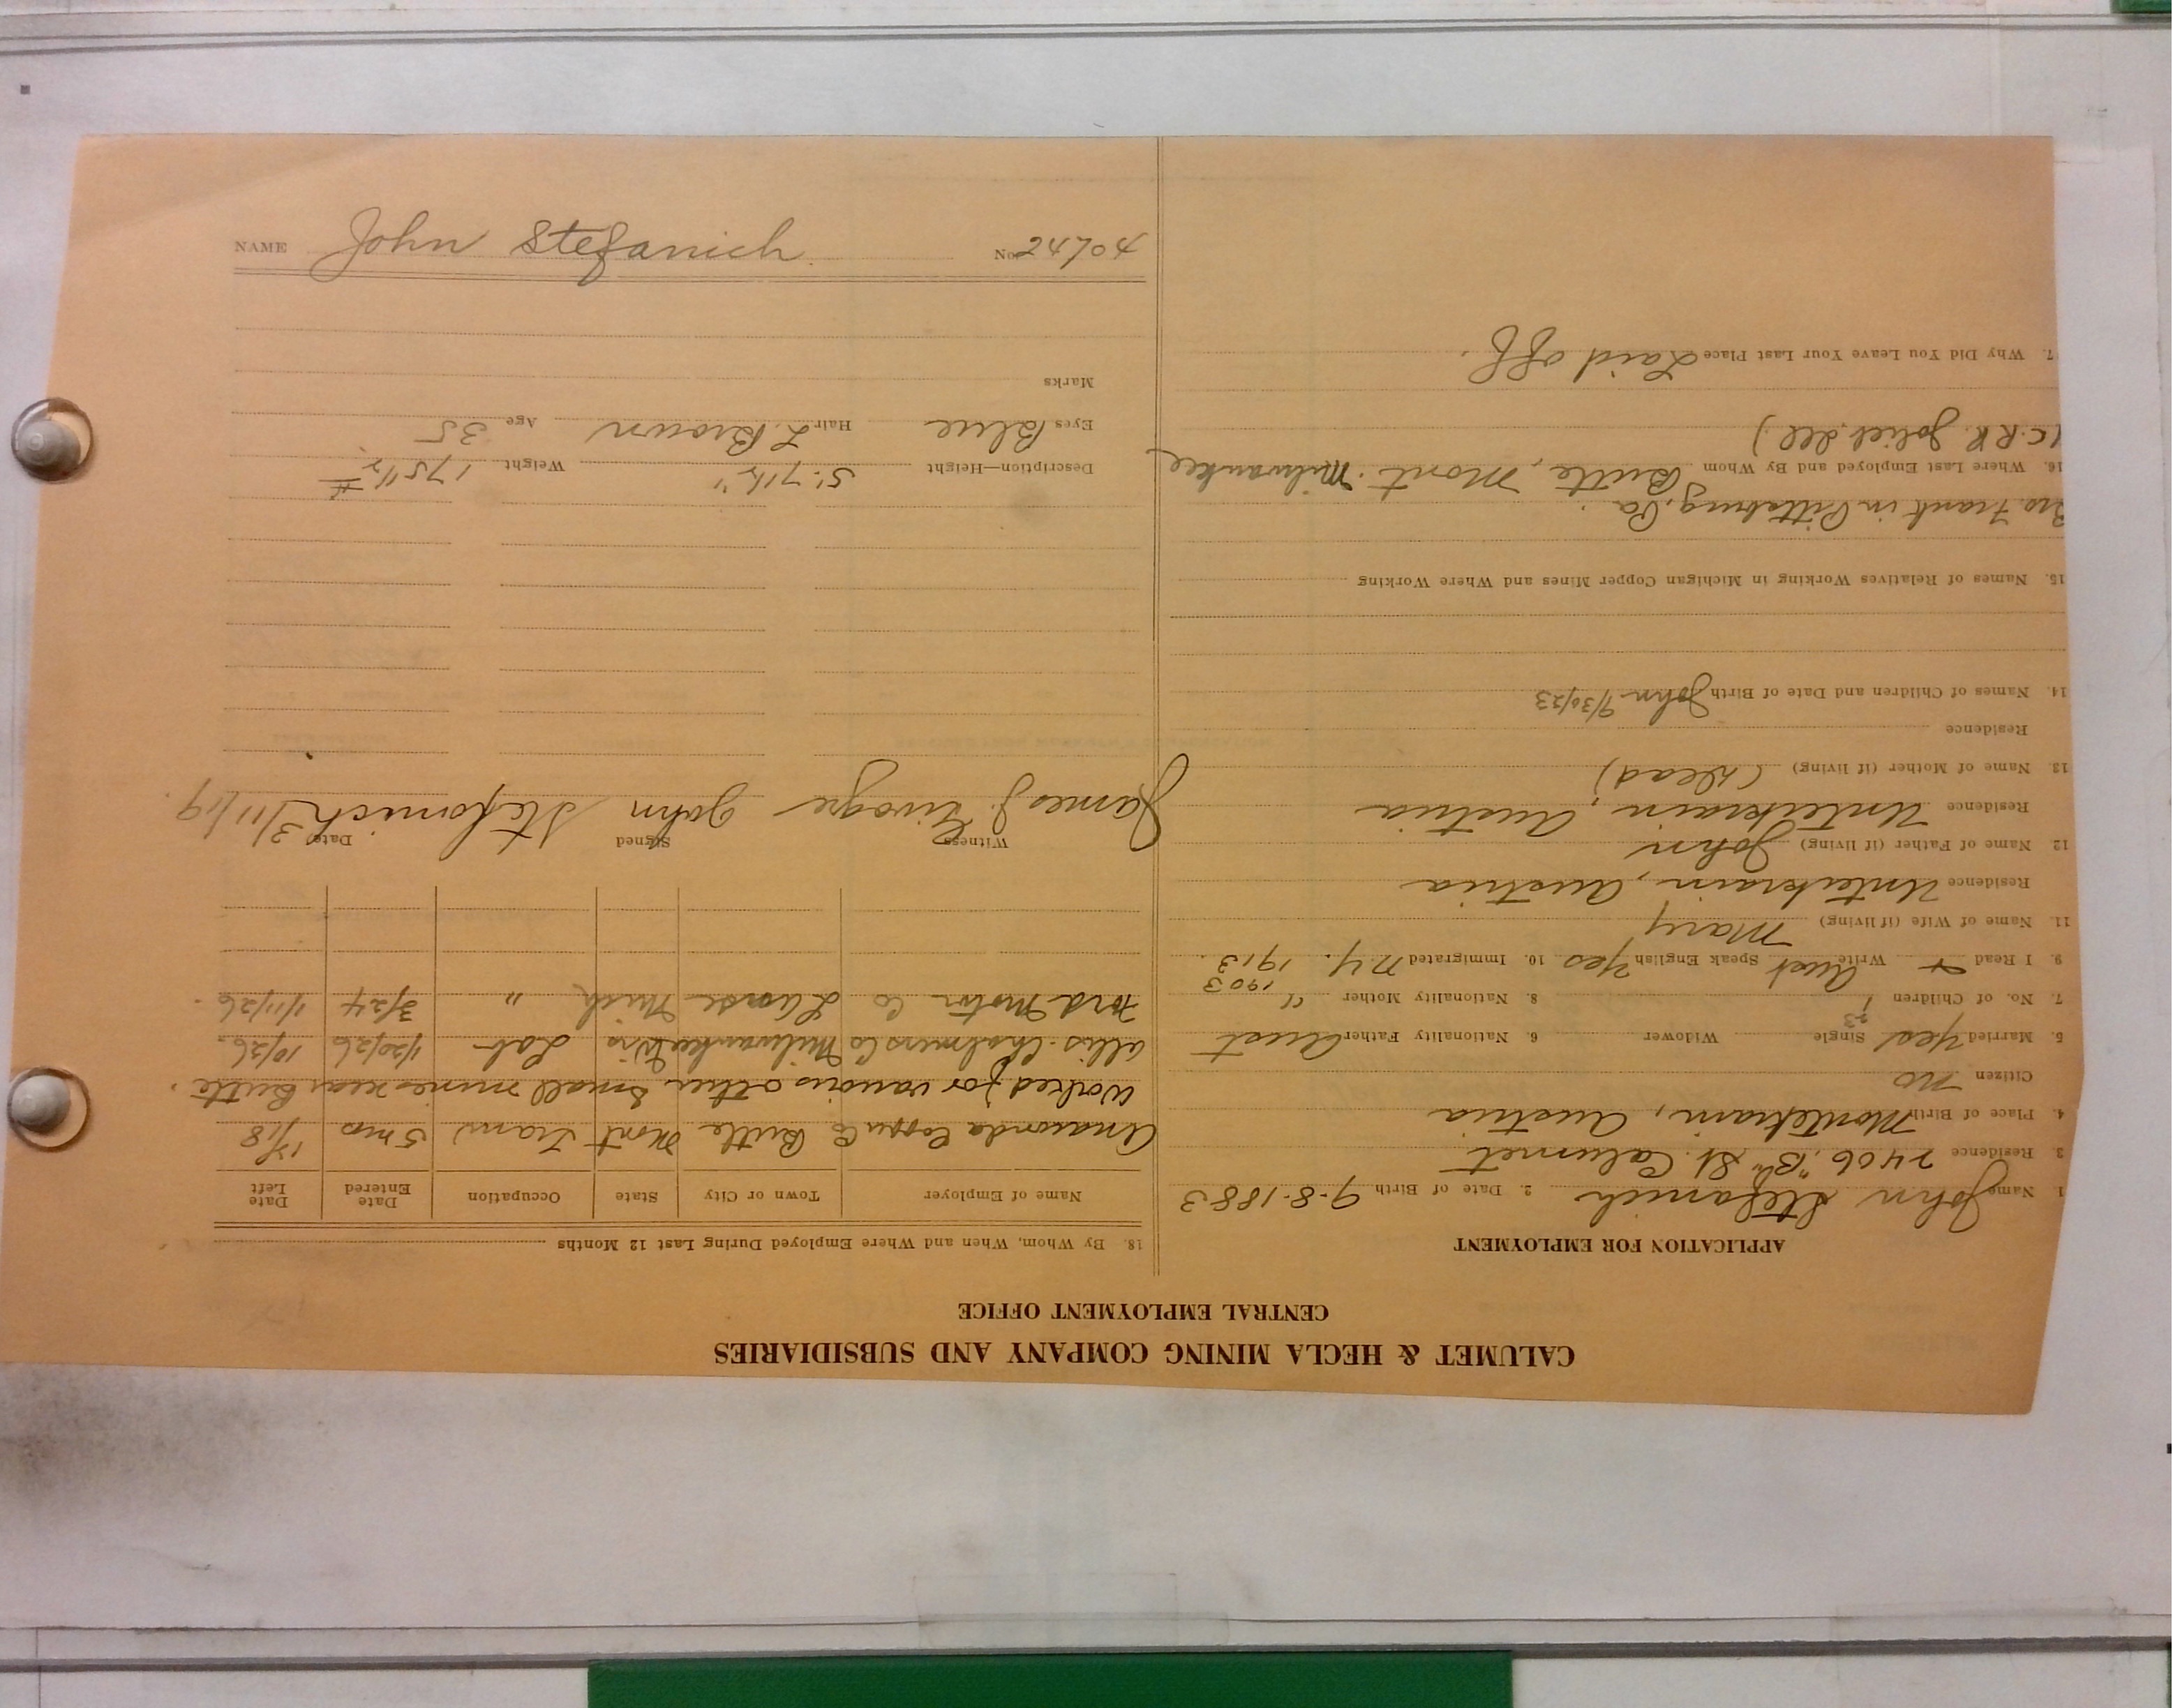 CALUMET & HECLA MINING COMPANY AND SUBSIDIARIES
CENTRAL EMPLOYMENT OFFICE
APPLICATION FOR EMPLOYMENT
1. Name John Stefanich 2. Date of Birth 9-8-1883
3. Residence 2406 "B" St. Calumet
4. Place of Birth Austria
Citizen no
5. Married Yes 23 Single Widower 6. Nationality Father Aust
7. No. of Children 1 8. Nationality Mother "
9. I Read + Write Aust Speak English Yes 10. Immigrated N.Y. 1903 1913
11. Name of Wife (if living) Mary
Residence Unterkrain, Austria
12. Name of Father (if living) John
Residence Unterkrain, Austria
13. Name of Mother (if living) (Dead)
Residence
14. Names of Children and Date of Birth John 9/30/23
15. Names of Relatives Working in Michigan Copper Mines and Where Working
Bro. Frank in Pittsburg, Pa.
16. Where Last Employed and By Whom Butte, Mont. Milwaukee
I.C.R.R. Joliet, Ill)
7. Why Did You Leave Your Last Place Laid off.
18. By Whom, When and Where Employed During Last 12 Months
Name of Employer Town or City State Occupation Date Entered Date Left
Anaconda Copper Co Butte Mont Tram 5 mos 12/18
Worked for various other small mines near Butte.
Allis-Chalmers Co Milwaukee Wis Lab 1/20/26 10/26.
Ford Motor Co Mich " 3/24 1/11/26.
Witness Signed Date
James J. John Stefanich 3/11/19.
Description—Height 5' 7 1/2" Weight 175 1/2 #
Eyes Blue Hair L. Brown Age 35
Marks
NAME John Stefanich. No.